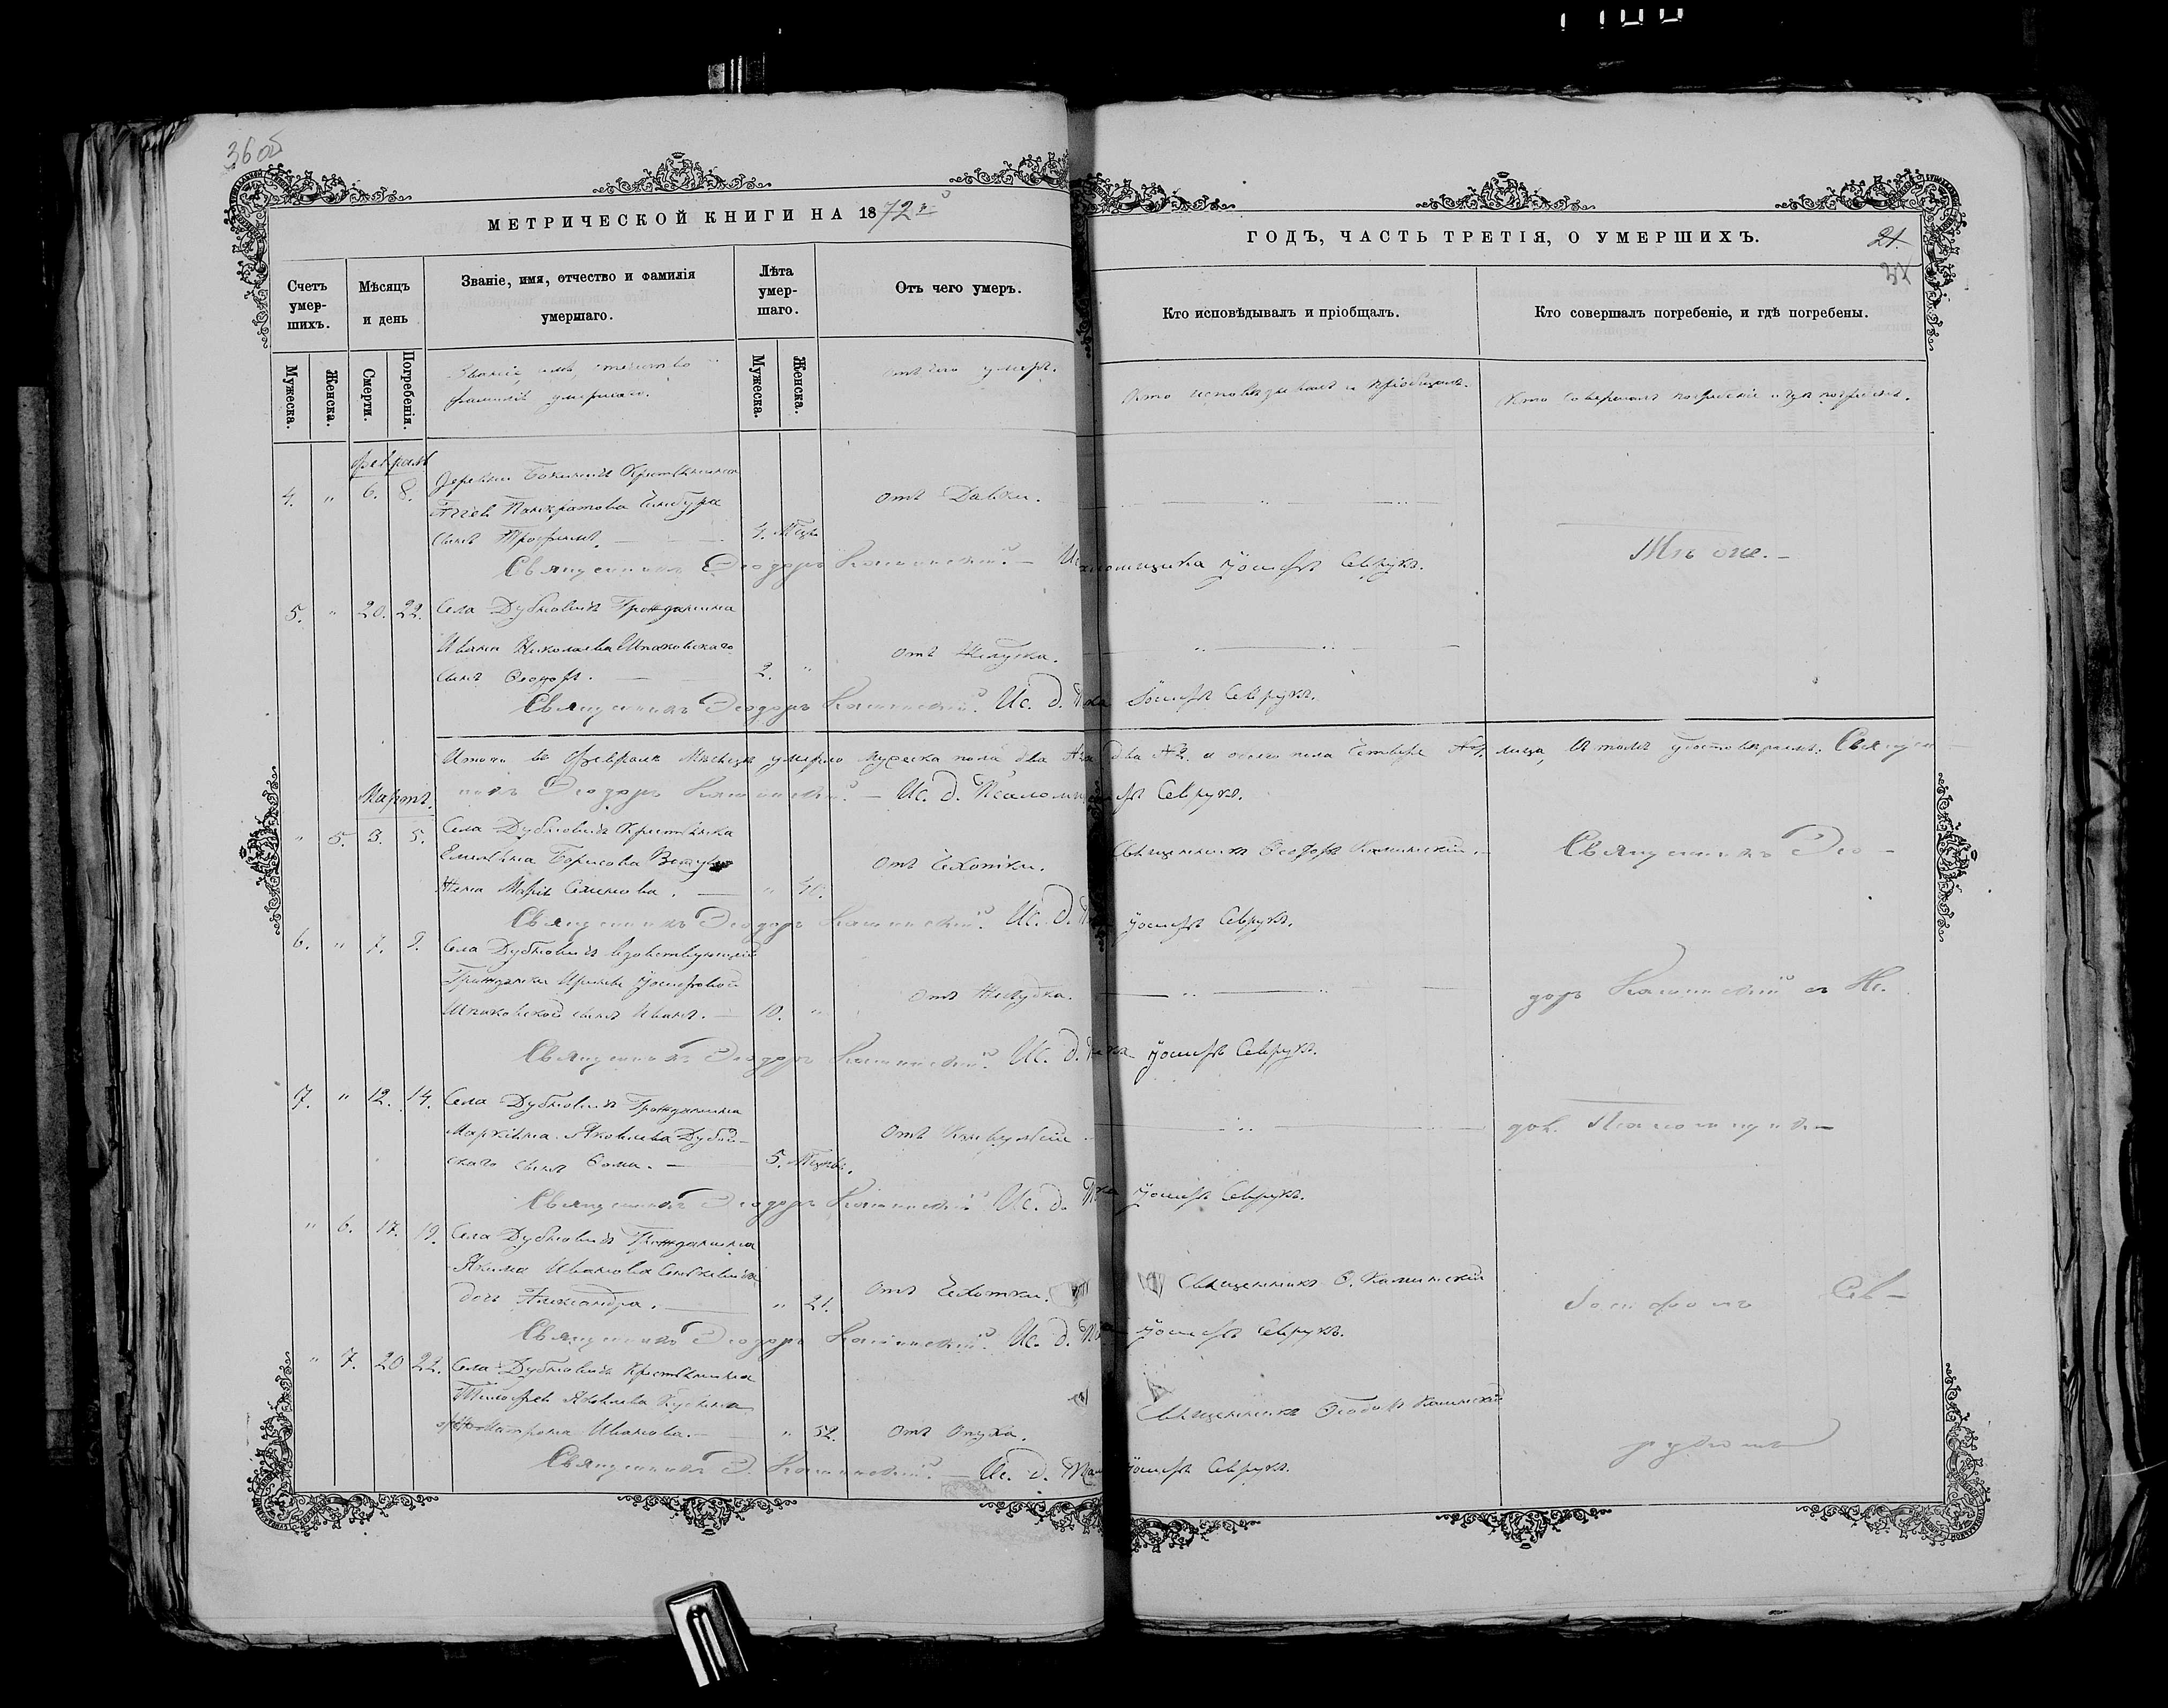 36об
МЕТРИЧЕСКОЙ КНИГИ НА 1872й
ГОДЪ, ЧАСТЬ ТРЕТІЯ, О УМЕРШИХЪ.
21.
Счетъ умер-
шихъ.
Мѣсяцъ
и день
Званіе, имя, отчество и фамилія
умершаго.
Лѣта
умер-
шаго.
Отъ чего умеръ.
Кто исповѣдывалъ и пріобщалъ.
Кто совершалъ погребеніе, и гдѣ погребены.
Мужеска.
Женска.
Смерти.
Погребенія.
Мужеска.
Женска.
Званіе, имя, отчество и
фамилія умершаго.
отъ чего умеръ.
Кто исповѣдывалъ и пріобщалъ.
Кто совершалъ погребеніе и гдѣ погребены.
Февраль
4. " 6. 8. Деревни Крестьянина
Панкратова
сынъ Трофимъ. 4. Мѣс.
отъ Давки.
Священникъ Ѳеодоръ Каминскій. — Ис. Псаломщика Іосифъ Севрукъ.
Тѣ же. —
5. " 20. 22. Села Дубновичъ Гражданина
Ивана Николаева Шпаковскаго
сынъ Ѳеодоръ. 2. "
отъ Желудка.
Священникъ Ѳеодоръ Каминскій. Ис. д. Пска Іосифъ Севрукъ.
Итого въ Февралѣ Мѣсяцѣ умерло мужеска пола два №2. два №2. и обоего пола Четыре №4. лица, въ томъ удостовѣряемъ: Священ
никъ Ѳеодоръ Каминскій. — Ис. д. Псаломщ Севрукъ.
Мартъ.
" 5. 3. 5. Села Дубновичъ Крестьянина
Емельяна Борисова
жена Марія Семенова. — " 40.
отъ Чахотки.
Священникъ Ѳеодоръ Каминскій. —
Священникъ Ѳео-
Священникъ Ѳеодоръ Каминскій. Ис. д. Пска Іосифъ Севрукъ.
6. " 7. 9. Села Дубновичъ вдовствующей
Гражданки Ирины Іосифовой
Шпаковской сынъ Иванъ. — 10. "
отъ Желудка.
доръ Каминскій съ Ис.
Священникъ Ѳеодоръ Каминскій. Ис. д. Пска Іосифъ Севрукъ.
7. " 12. 14. Села Дубновичъ Гражданина
Маркіяна Яковлева Дубой-
скаго сынъ Ѳома. — 5. Мѣсяц.
отъ Конвульсіи
дол. Псаломщик—
Священникъ Ѳеодоръ Каминскій Ис. д. Пска Іосифъ Севрукъ.
" 6. 17. 19. Села Дубновичъ Гражданина
Якима Иванова
дочь Александра. " 21.
отъ Чахотки.
Священникъ Ѳ. Каминскій
Іосифомъ Сев-
Священникъ Ѳеодоръ Каминскій. Ис. д. Пска Іосифъ Севрукъ.
" 7. 20 22. Села Дубновичъ Крестьянина
Яковлева
Матрона Иванова. — " 52.
отъ опуха.
Священникъ Ѳеодоръ Каминскій
рукомъ
Священникъ Ѳ. Каминскій. — Ис. д. Іосифъ Севрукъ.